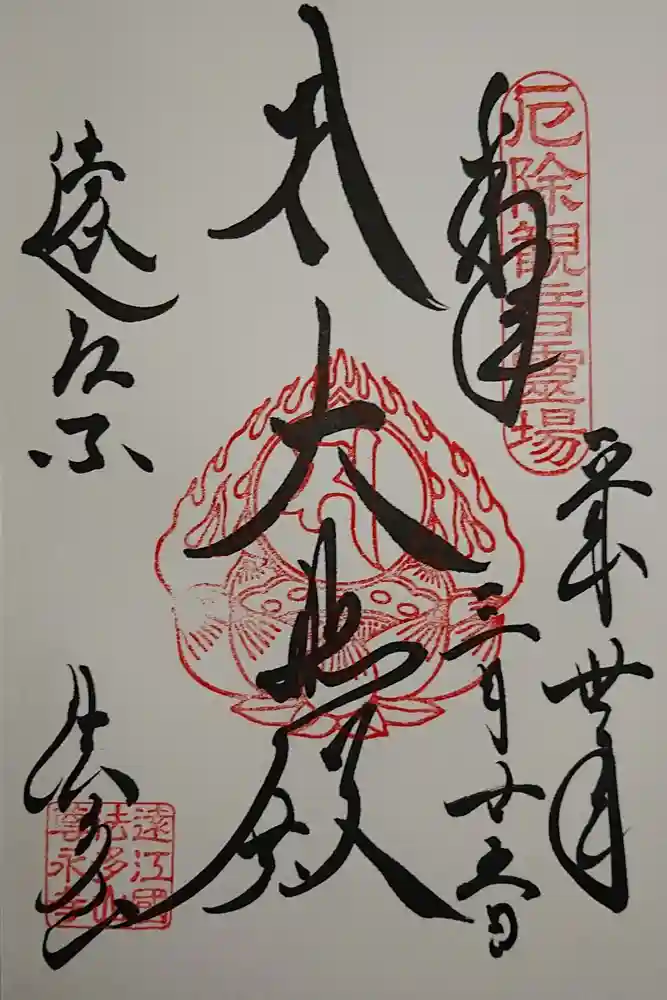 厄除観音靈場
奉拝
平成卅年
三月廿五日
大悲殿
法多山
遠江國
法多山
尊永寺